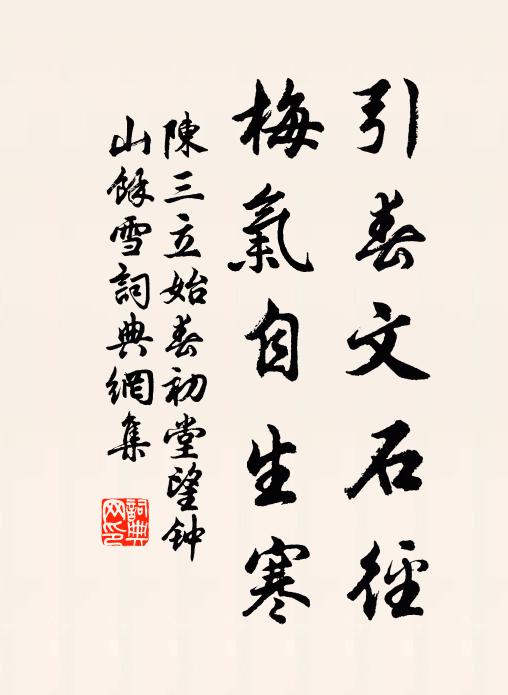 引春文石徑
梅氣自生寒
陳三立始春初堂望钟
山餘雪詞典網集
詞典
网印